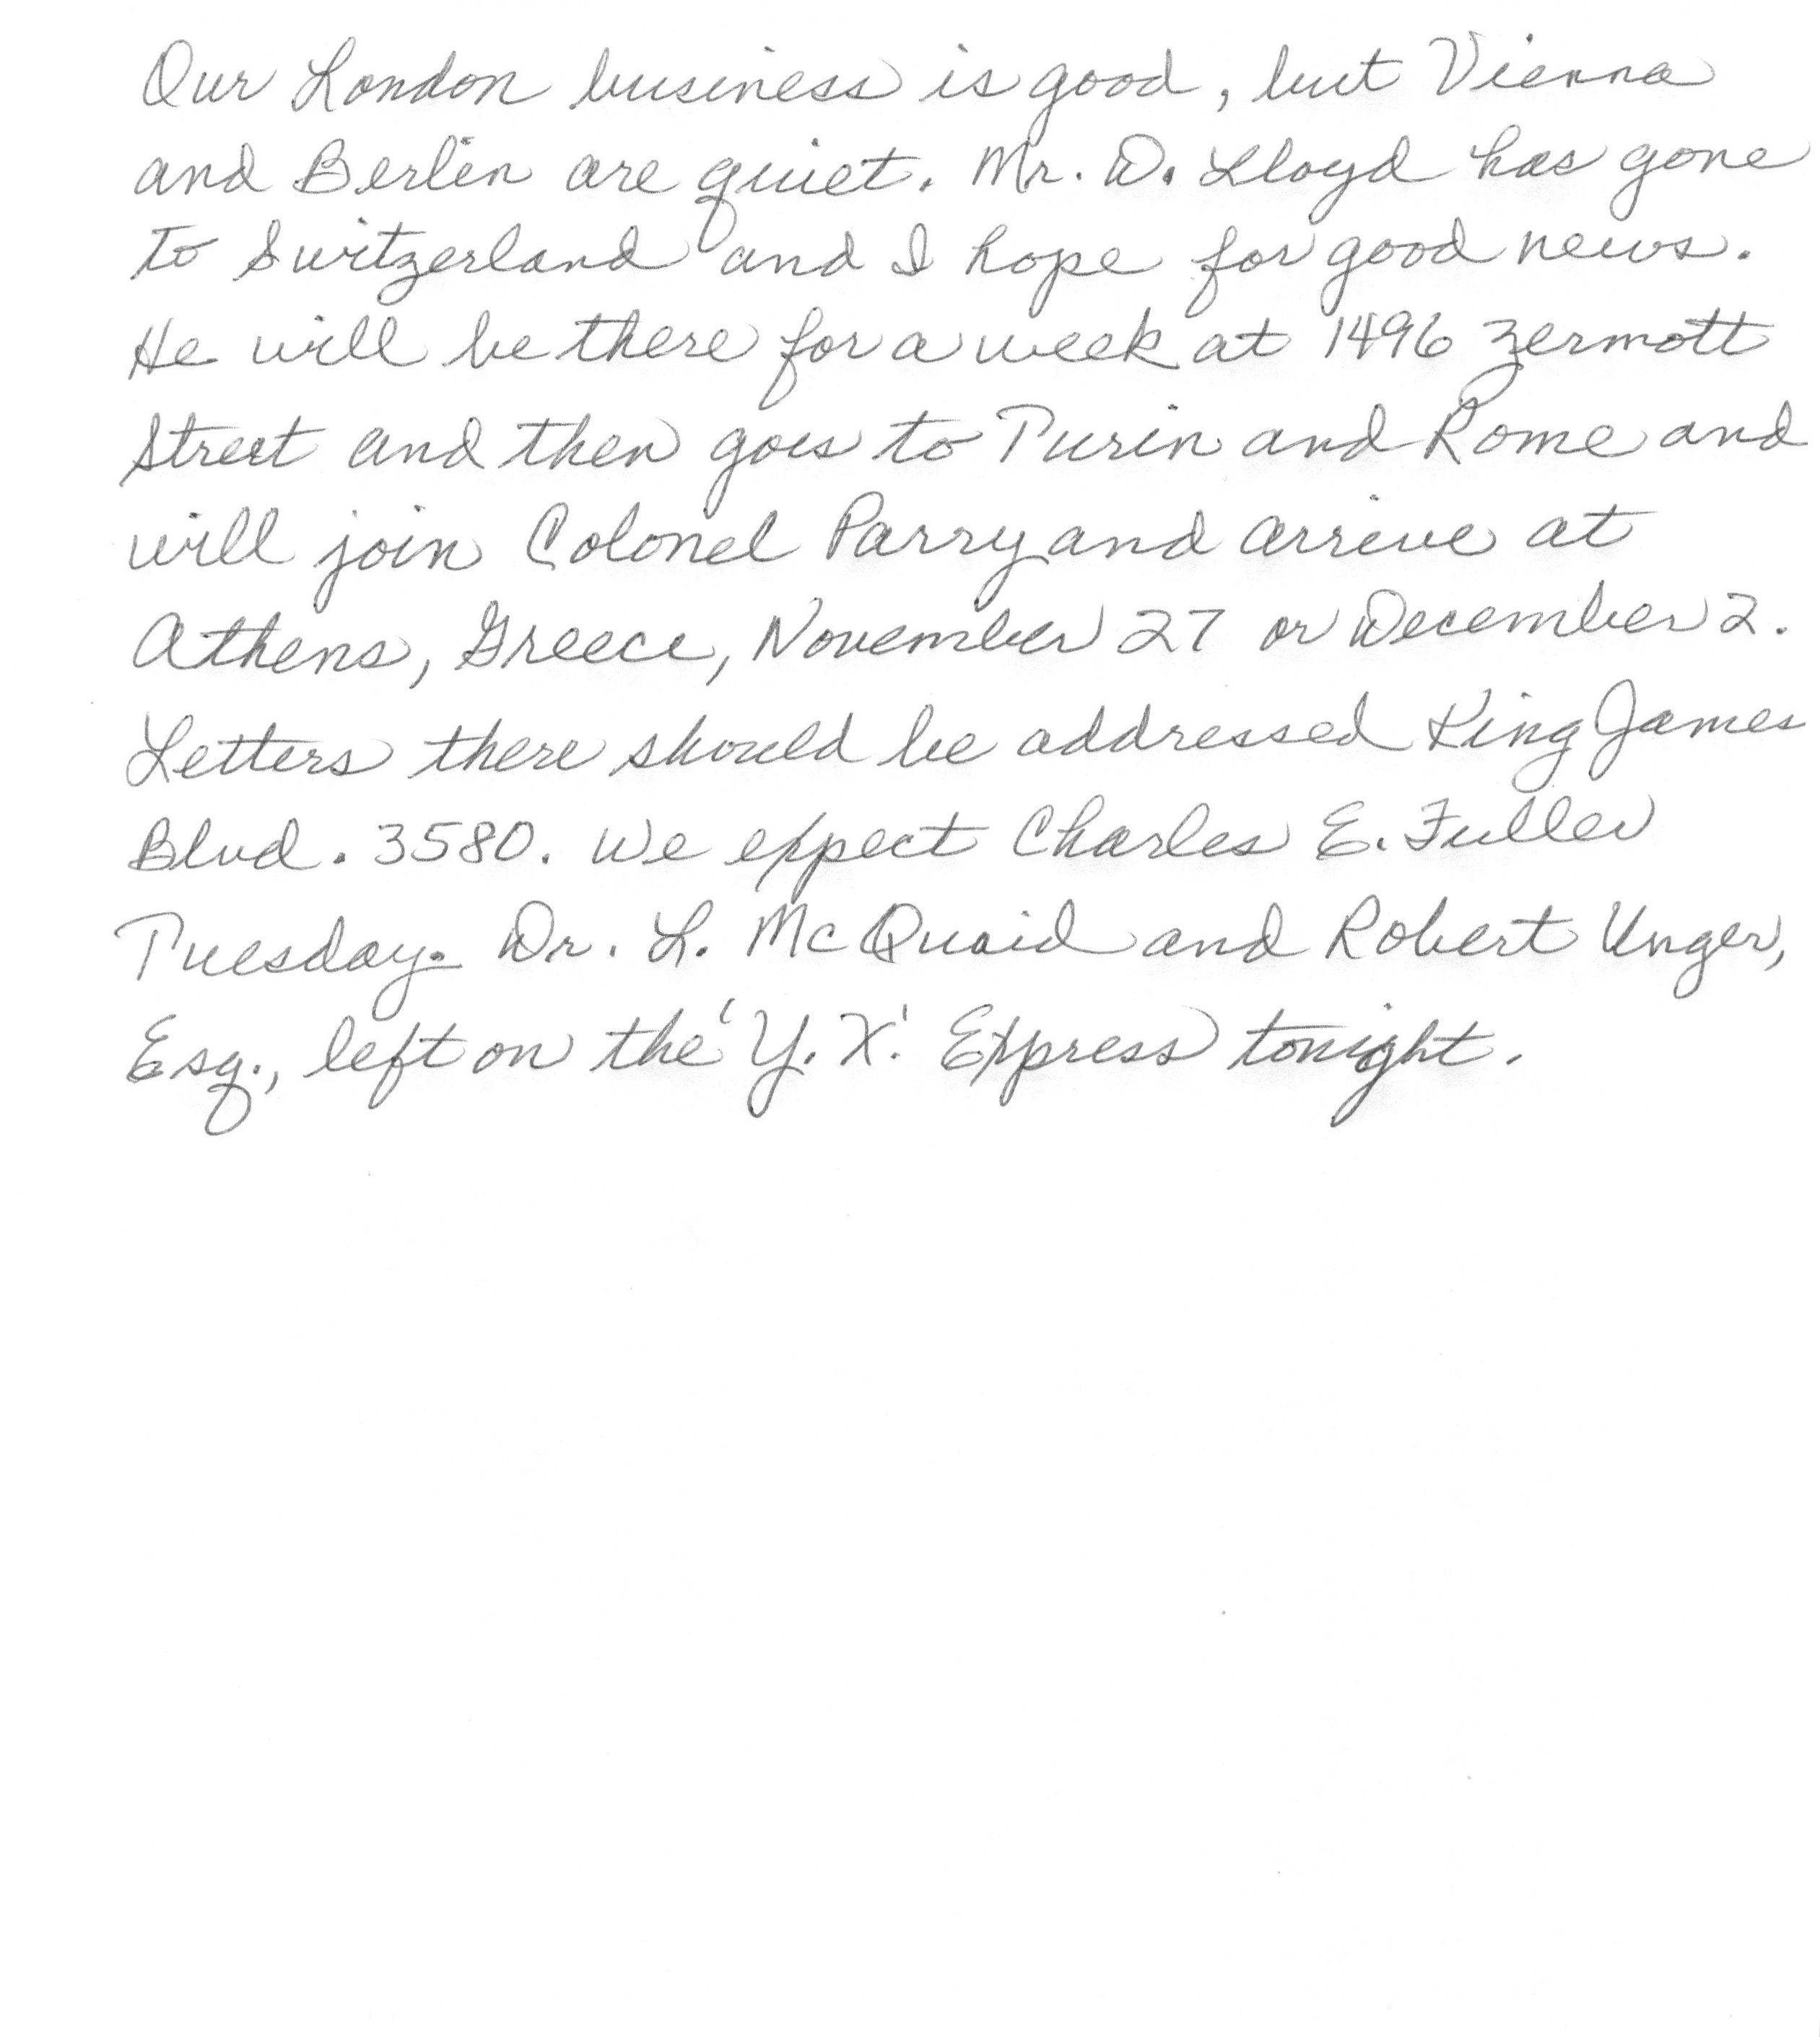 Our London business is good, but Vienna
and Berlin are quiet. Mr. D. Lloyd has gone
to Switzerland and I hope for good news.
He will be there for a week at 1496 Zermott
Street and then goes to Turin and Rome and
will join Colonel Parry and arrive at
Athens, Greece, November 27 or December 2.
Letters there should be addressed King James
Blvd. 3580. We expect Charles E. Fuller
Tuesday. Dr. L. McQuaid and Robert Unger,
Esq., left on the 'Y.X.' Express tonight.